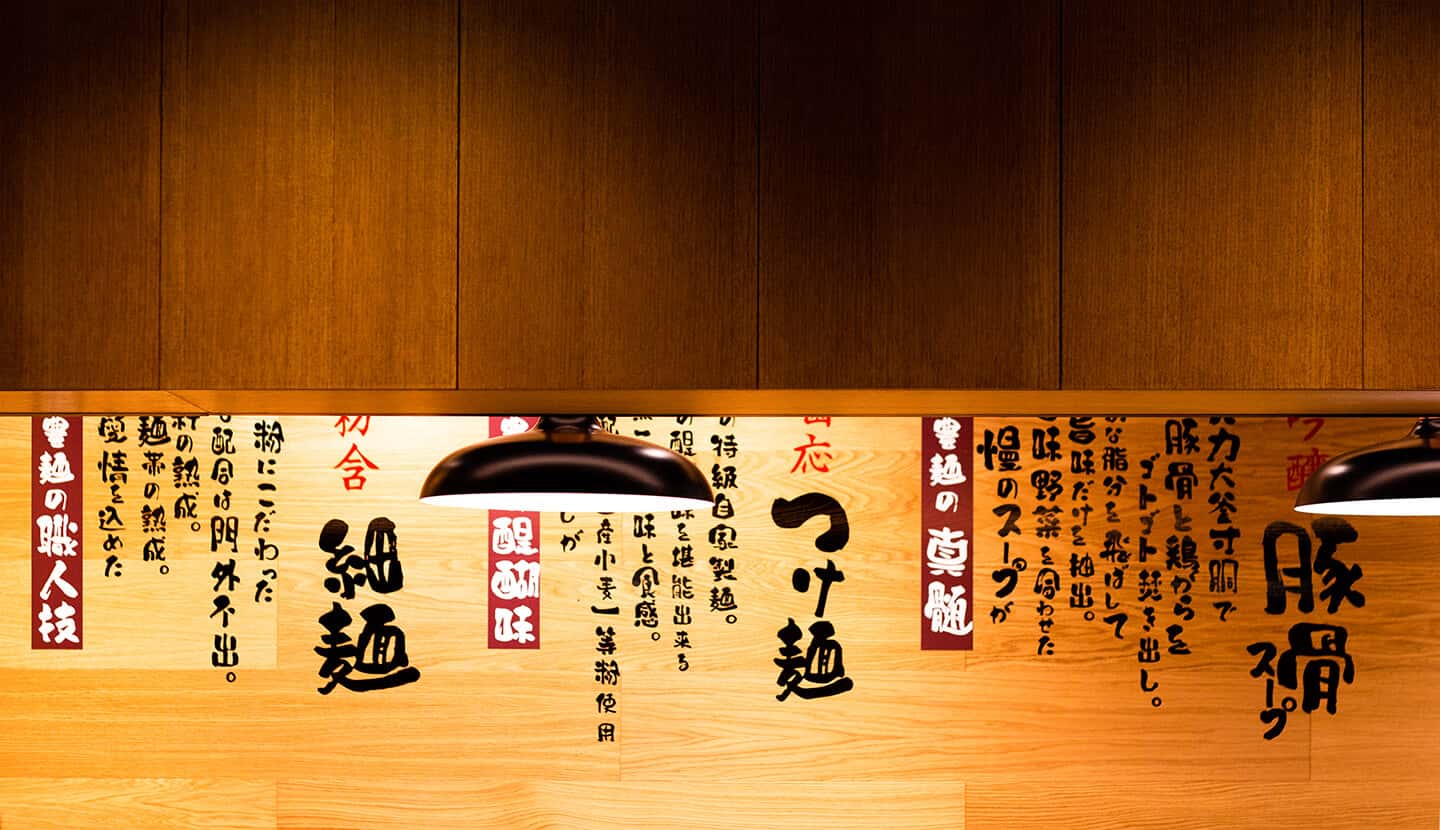 豚骨
スープ
力大釜寸胴で
豚骨と鶏がらを
ゴトゴト焚き出し。
な脂分を飛ばして
旨味だけを抽出。
味野菜を合わせた
慢のスープが
豊麺の真髄
応
つけ麺
の特級自家製麺。
の醍醐味を堪能出来る
味と食感。
産小麦一等粉使用
しが
醍醐味
粉合
細麺
粉にこだわった
配合は門外不出。
の熟成。
麺帯の熟成。
愛情を込めた
豊麺の職人技